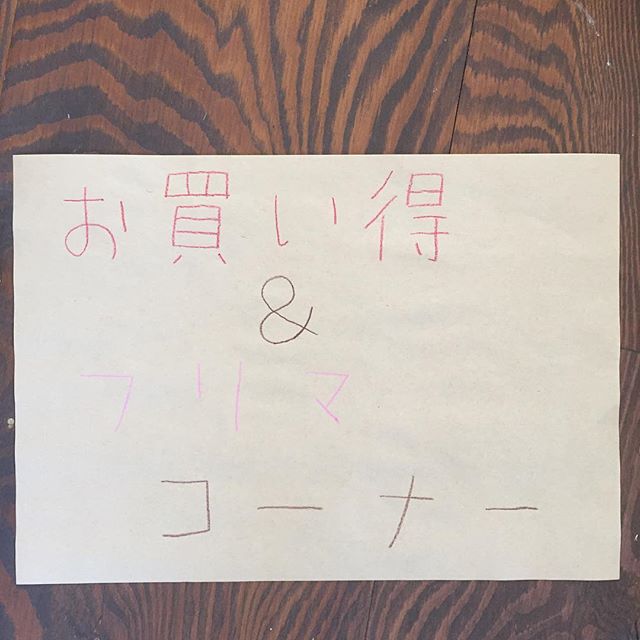 お買い得
&
フリマ
コーナー